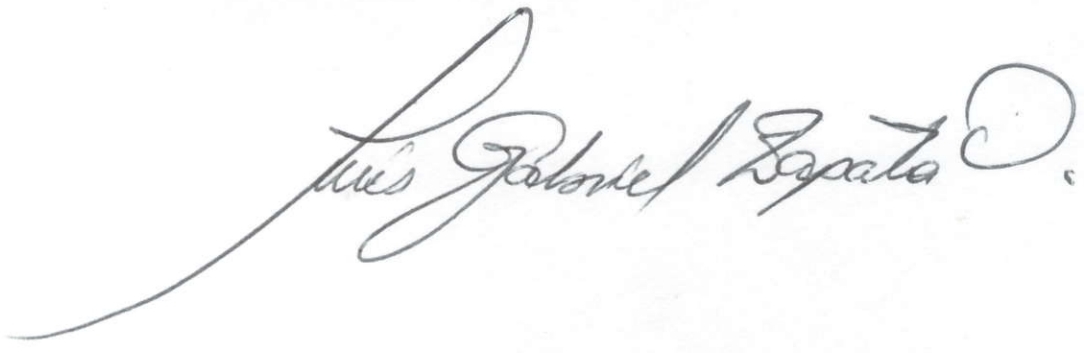 Luis Gabriel Zapata O.